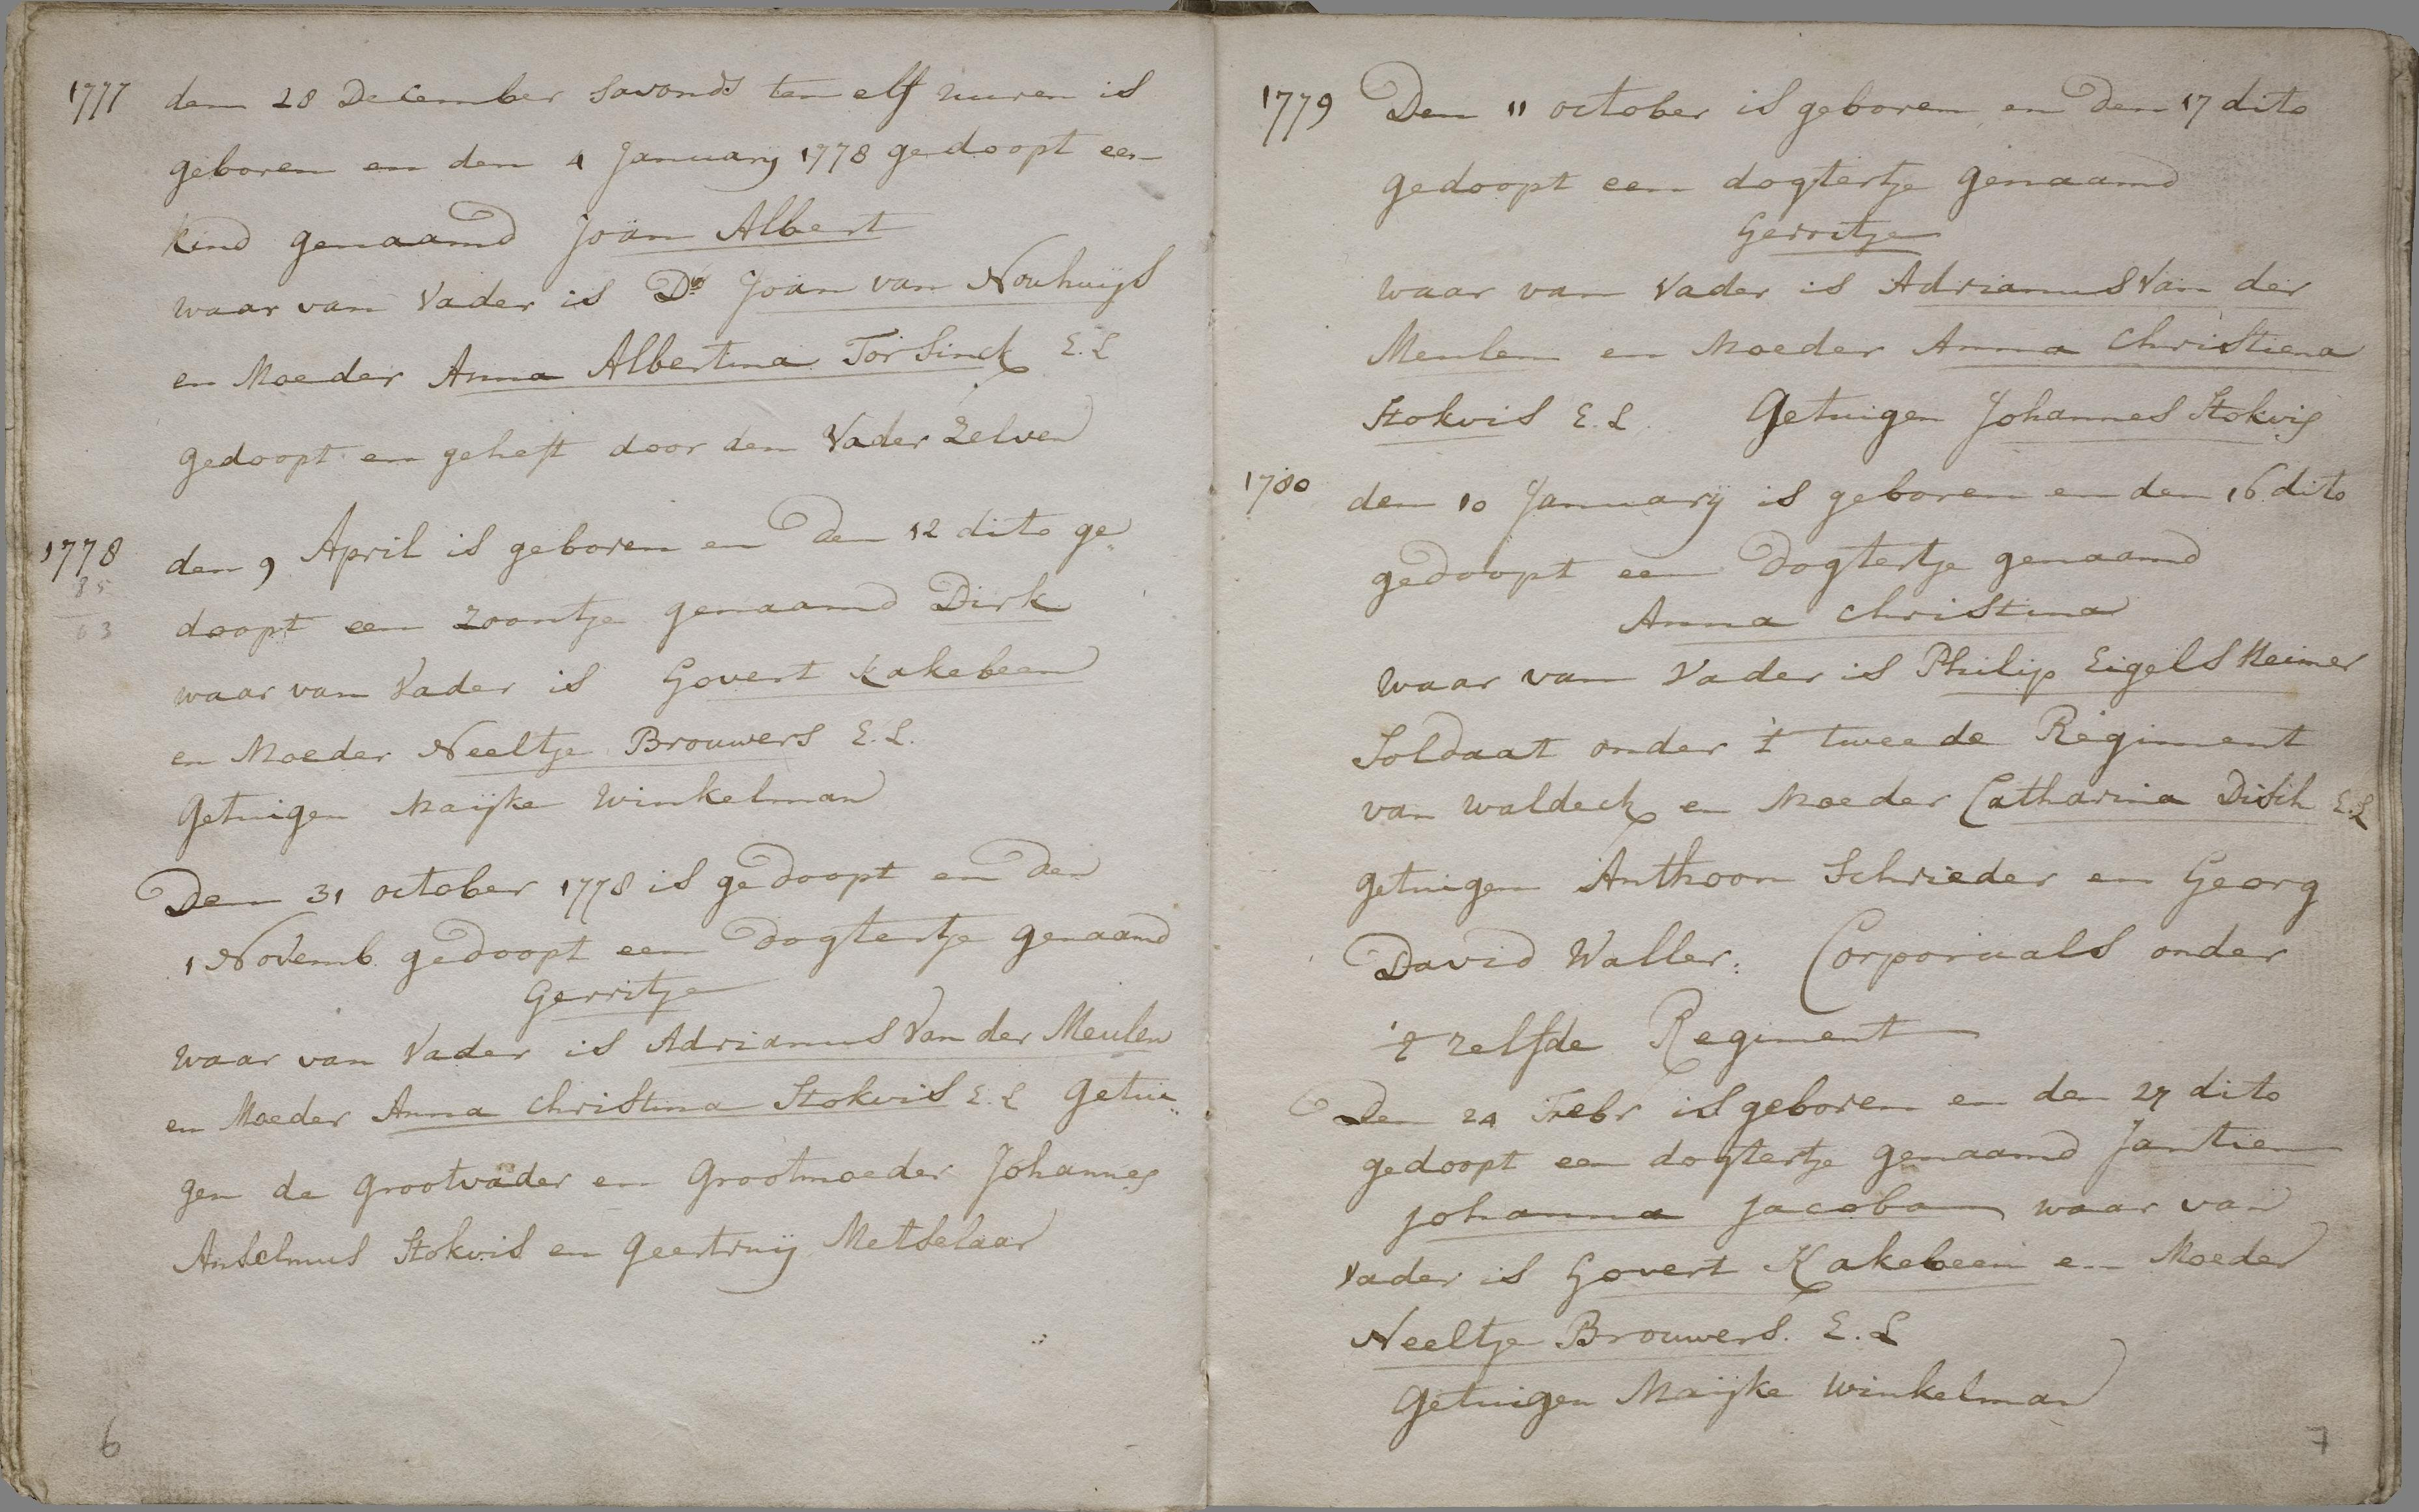 1777 den 28 December savonds ten elf uuren is
geboren en den 4 January 1778 gedoopt een
kind genaamd Joan Albert
waar van Vader is Ds Joan van Nouhuijs
en Moeder Anna Albertina Torsinck E.L
gedoopt en geheft door den Vader Zelven
1778 den 9 April is geboren en Den 12 dito ge„
85
63
doopt een zoontje genaamd Dirk
waar van Vader is Govert Kakebeen
en Moeder Neeltje Brouwers E.L.
Getuigen Maijke Winkelman
Den 31 october 1778 is gedoopt en den
1 Novemb. gedoopt een Dogtertje genaamd
Gerritje
waar van Vader is Adrianus Van der Meulen
en Moeder Anna Christina Stokvis E.L Getui„
gen de Grootvader en Grootmoeder Johannes
Anselmus Stokvis en Geertruij Metselaar
6
1779 Den 11 october is geboren en Den 17 dito
gedoopt een dogtertje genaamd
Gerritje
waar van Vader is Adrianus Van der
Meulen en Moeder Anna Christiena
Stokvis E.L. Getuigen Johannes Stokvis
1780 den 10 Januarij is geboren en den 16 dito
gedoopt een Dogtertje genaamd
Anna Christina
waar van Vader is Philip Eigelsheimer
Soldaat onder 't tweede Regiment
van Waldeck en Moeder Catharina Disch E.L
getuigen Anthoon Schrieder en Georg
David Waller: Corporaals onder
't zelfde Regiment
Den 24 Febr is geboren en den 27 dito
gedoopt een dogtertje genaamd Jantien
Johanna Jacoba waar van
Vader is Govert Kakebeen en Moeder
Neeltje Brouwers. E.L
Getuigen Maijke Winkelman
7